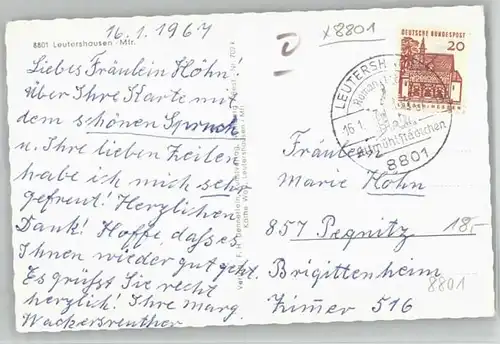 16.1.1967
8801 Leutershausen - Mfr.
Liebes Fräulein Höhn!
Über Ihre Karte mit
dem schönen Spruch
u. Ihre lieben Zeilen
habe ich mich sehr
gefreut! Herzlichen
Dank! Hoffe, dass es
Ihnen wieder gut geht.
Es grüßt Sie recht
herzlich! Ihre marg.
Wackersreuther
x8801
DEUTSCHE BUNDESPOST
20
LEUTERSH
16.1.
Altmühlstädtchen
8801
Fräulein
Marie Höhn
857 Pegnitz
18,-
Brigittenheim
8801
Zimmer 516